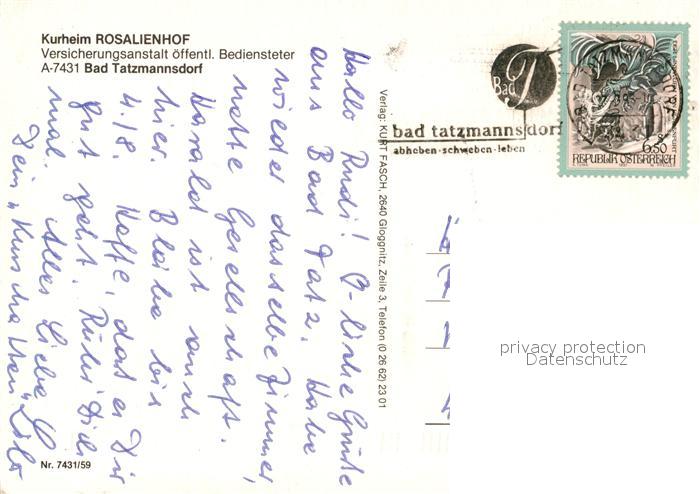 Kurheim ROSALIENHOF
Versicherungsanstalt öffentl. Bediensteter
A-7431 Bad Tatzmannsdorf
Hallo Rudi! B-liche Grüße
aus Bad Tatz. Habe
wieder dasselbe Zimmer,
nette Gesellschaft.
Harald ist auch
hier. Bleibe bis
4./8. Hoffe, das es Dir
gut geht. Rühr Dich
mal. Alles Liebe
Dein "Kurschatten" Lilo
Nr. 7431/59
Verlag: KURT FASCH, 2640 Gloggnitz, Zeile 3, Telefon (0 26 62) 23 01
Bad
bad tatzmannsdorf
abheben-schweben-leben
S
6.50
REPUBLIK ÖSTERREICH
1997
privacy protection
Datenschutz